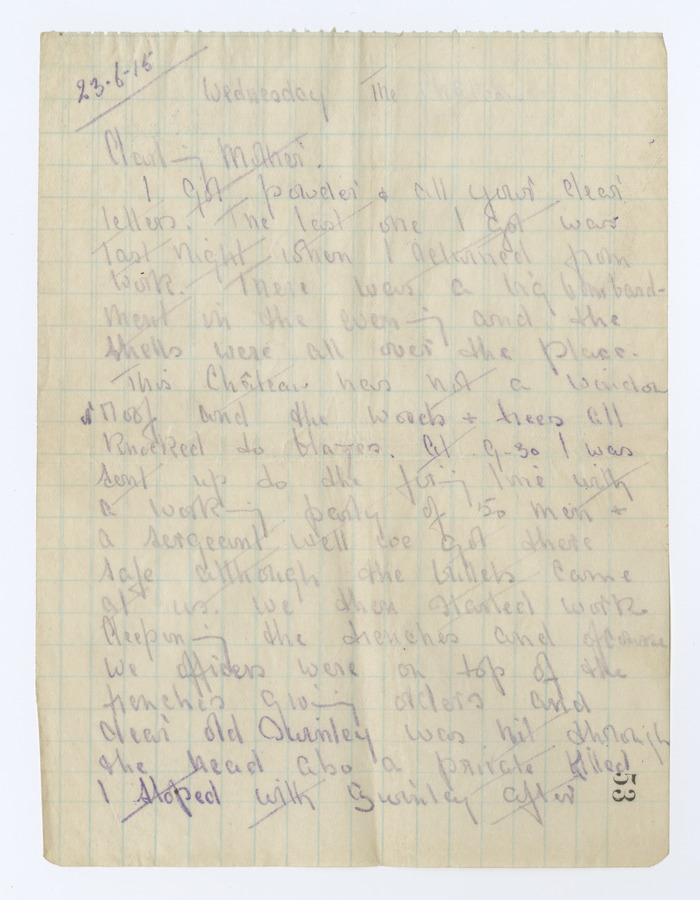 23-6-15
Wednesday The Chateau
Darling Mother.
I got powder & all your dear
letters. The last one I got was
last night when I returned from
work. There was a big bombard-
ment in the evening and the
shells were all over the place.
This Château has not a window
or roof and the woods & trees all
knocked to blazes. At 9-30 I was
sent up to the firing line with
a working party of 50 men &
a sergeant well we got there
safe although the bullets came
at us. we then started work
deepening the trenches and ofcourse
we officers were on top of the
trenches giving orders and
dear old Swinley was hit through
the head also a private killed
I stoped with Swinley after
53